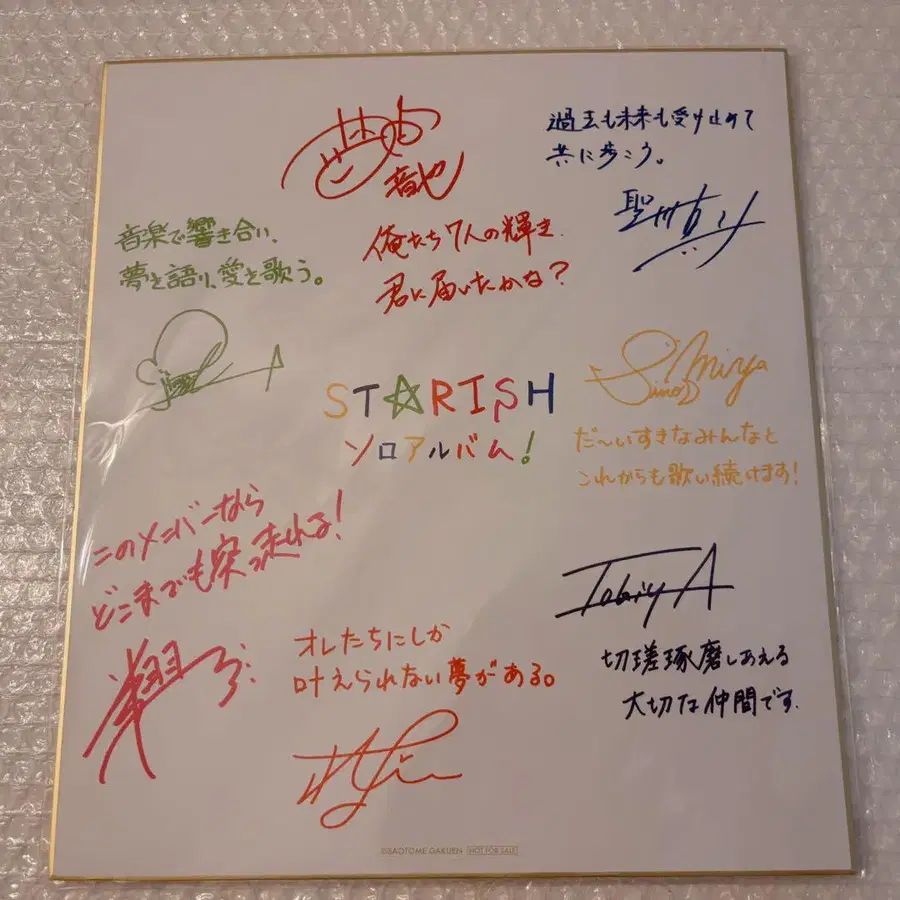 音也
俺たち7人の輝き、
君に届いたかな?
過去も未来も受け止めて
共に歩こう。
聖川
音楽で響き合い、
夢を語り、愛を歌う。
ST☆RISH
ソロアルバム!
だ〜いすきなみんなと
これからも歌い続けます!
このメンバーなら
どこまでも突っ走れる!
翔
オレたちにしか
叶えられない夢がある。
切磋琢磨しあえる
大切な仲間です。
©SAOTOME GAKUEN NOT FOR SALE